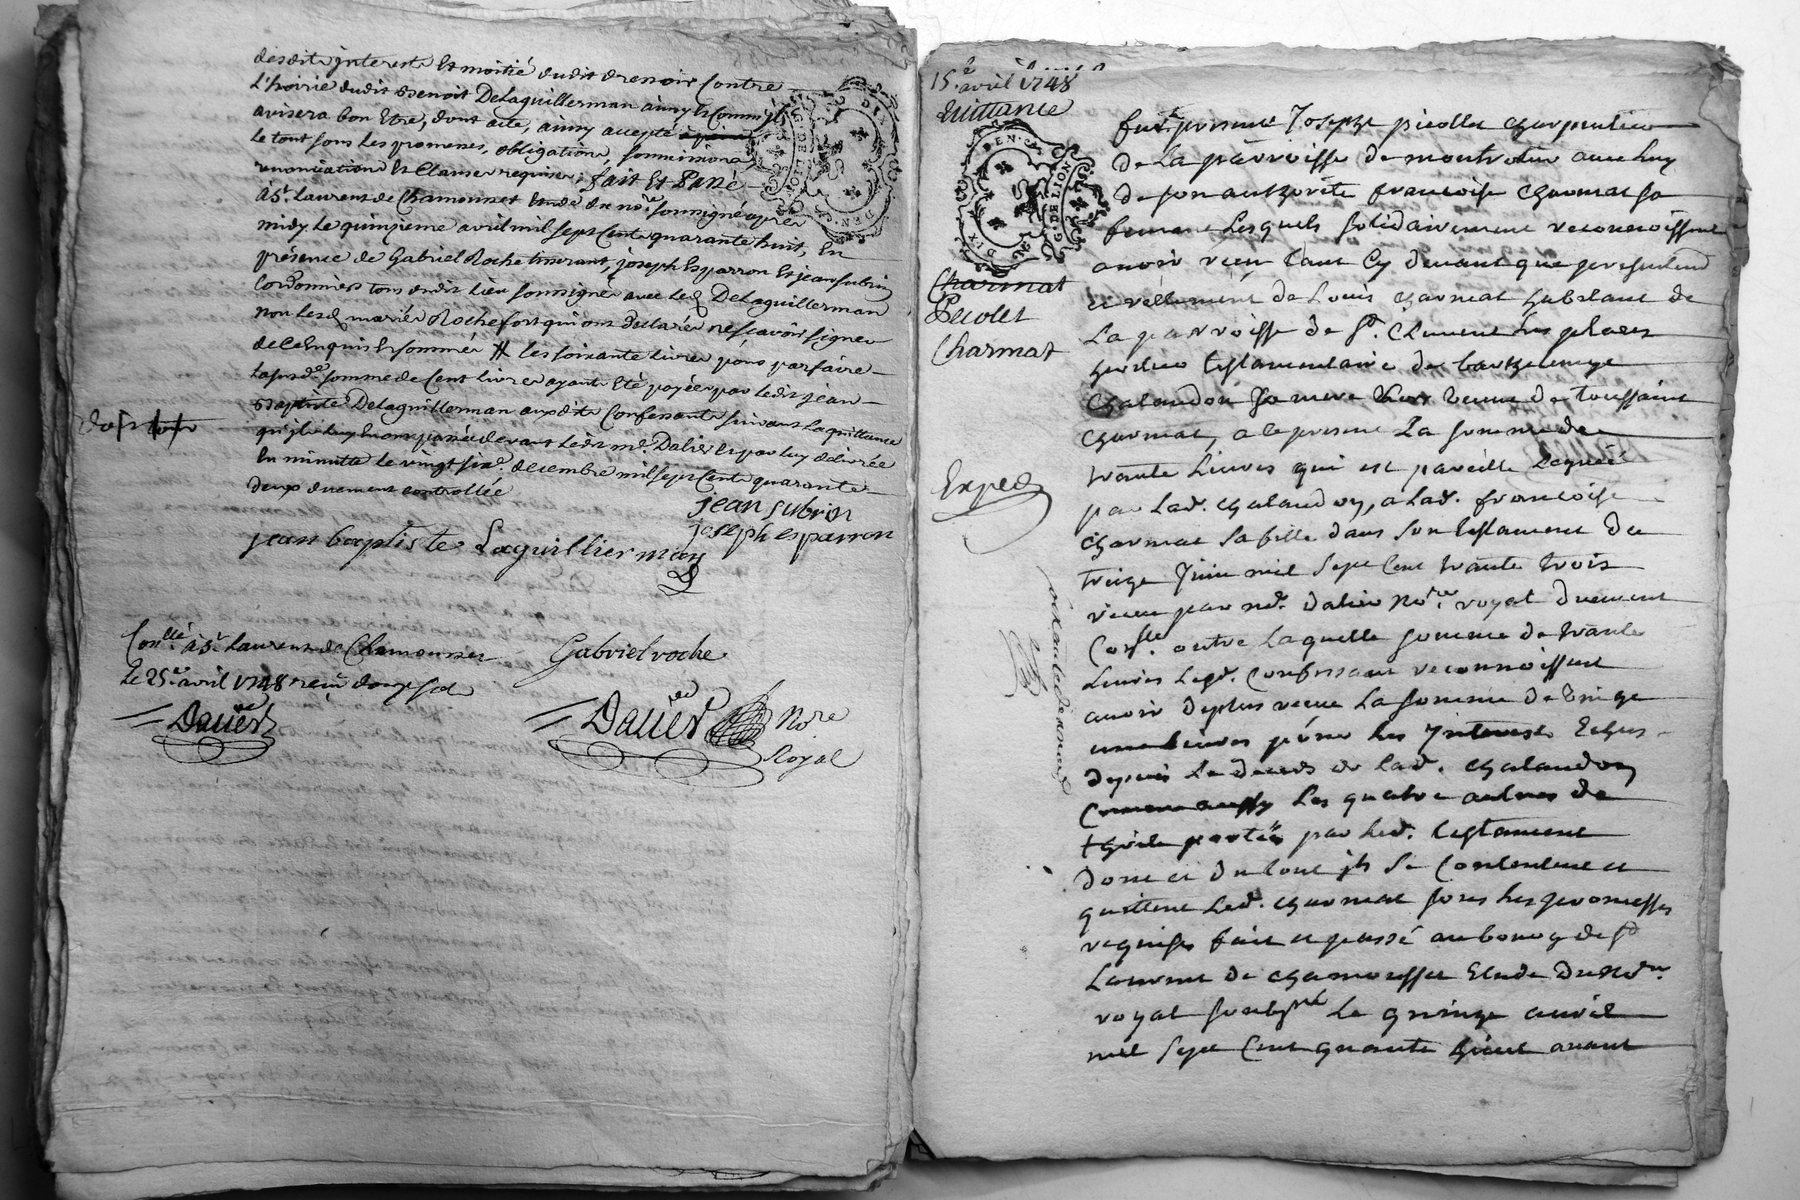 desdits interests et moitié dudit Benoir contre
L'hoirie dudit Benoit DeLaguillerman ainsy et comme il
avisera bon Etre, dont acte, ainsy accepté
Le tout sous Les promesses, obligations, soumissions
renonciations Et Clauses requises; fait Et Passé
à St. Laurent de Chamousset Etude du nore. soussigné apres
midy Le quinzieme avril mil sept Cent quarante huit, En
présence de Gabriel Roche tisserant, joseph Esparron Et jean subrin
Cordonniers tous dudit Lieu soussignés avec led. DeLaguillerman
non Lesd. mariés Rochefort qui ont declarés ne scavoir signer
de ce Enquis Et sommés # les soixante livres pour parfaire
La susde. somme de Cent livres ayants Eté payées par ledit jean
Baptiste DeLaguillerman auxdits Confessants suivant La quittance
qu'ils Luy En ont passée devant Ledit me. Dalier Et par luy delivrée
En minutte le vingt sixe. decembre mil sept Cent quarante
deux duement controllée
jean subrin
joseph esparron
jean baptiste Laguillierman
Conllé. à St. Laurent de Chamousset
Le 25e. avril 1748 reçu douze sols
Gabriel roche
Dauer
Dauer Nore
Royal
15e. avril 1748
Quittance
GDE LION
DEN.
DIX
Charmat
Picolet
Charmat
Exped
fut présent Joseph picollet charpentier
de La parroisse de montrotier avec Luy
de son authorité francoise charmat sa
femme Lesquels solidairement reconnoissent
avoir reçu tant Cy devant que presentement
et réellement de Louis charmat habitant de
La parroisse de St. Clement Les places
heritier testamentaire de barthelemye
chalandon sa mere veuve de toussaint
charmat, a ce present La somme de
trante Livres qui est pareille Leguée
par Lad. chalandon, a Lad. francoise
charmat sa fille dans son testament du
treize Juin mil sept Cent trante trois
reçu par me. dalier Nore. royal duement
Conllé. outre Laquelle somme de trante
Livres Lesd. Confessant reconnoissent
avoir deplus reçue La somme de
Livres pour Les Interests Echus
depuis Le deceds de Lad. chalandon
Comme aussy Les quatre aulnes de
thoile portées par Led. testament
dont et du tout ils se Contentent et
quittent Led. charmat sous Les promesses
requises fait et passé au bourg de St.
Laurent de chamousset Etude du Nore.
royal soubsné Le quinze avril
mil sept Cent quarante huict avant